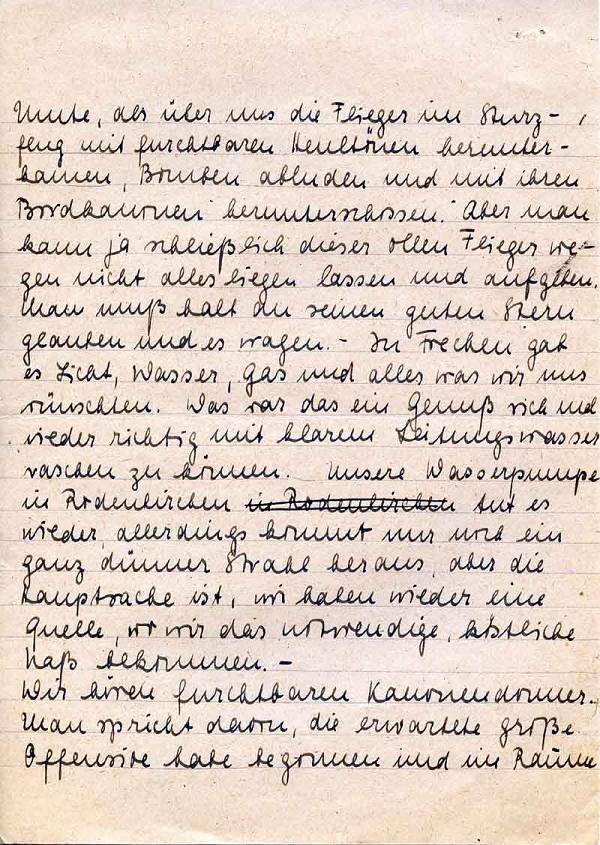 Mute, als über uns die Flieger im Sturz-
flug mit furchtbaren Heultönen herunter-
kamen, Bomben abluden und mit ihren
Bordkanonen herunterschossen. Aber man
kann ja schließlich dieser ollen Flieger we-
gen nicht alles liegen lassen und aufgeben.
Man muß halt an seinen guten Stern
glauben und es wagen. - In Frechen gab
es Licht, Wasser, Gas und alles was wir uns
wünschten. Was war das ein Genuß sich mal
wieder richtig mit klarem Leitungswasser
waschen zu können. Unsere Wasserpumpe
in Rodenkirchen in Rodenkirchen tut es
wieder, allerdings kommt nur noch ein
ganz dünner Strahl heraus, aber die
Hauptsache ist, wir haben wieder eine
Quelle, wo wir das notwendige, köstliche
Naß bekommen. -
Wir hören furchtbaren Kanonendonner.
Man spricht davon, die erwartete große
Offensive habe begonnen und im Raume